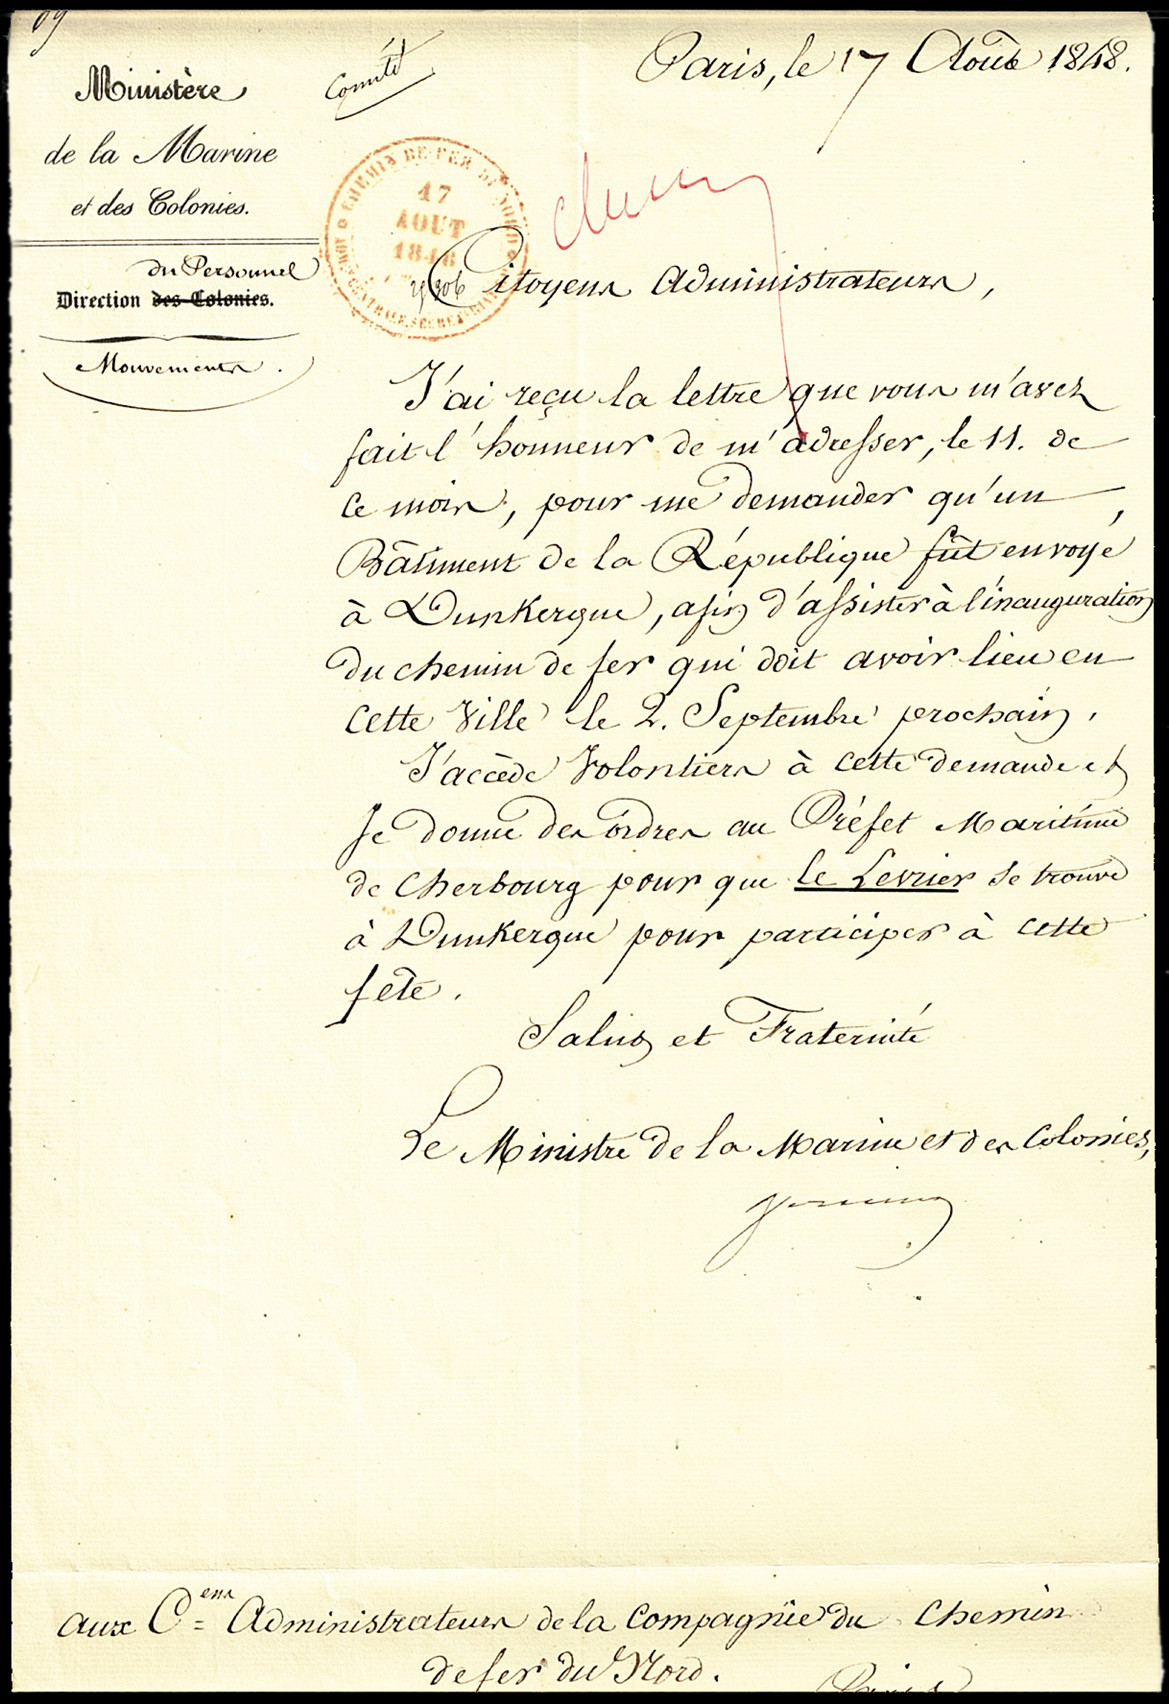 69
Ministère
de la Marine
et des Colonies.
du Personnel
Direction des Colonies.
Mouvements.
Comité
Paris, le 17 Août 1848.
CHEMIN DE FER DU NORD
17
AOUT
1848
Citoyens Administrateurs,
J'ai reçu la lettre que vous m'avez
fait l'honneur de m'adresser, le 11. de
ce mois, pour me demander qu'un
Bâtiment de la République fût envoyé
à Dunkerque, afin d'assister à l'inauguration
du chemin de fer qui doit avoir lieu en
cette Ville le 2. Septembre prochain.
J'accède Volontiers à cette demande et
Je donne des ordres au Préfet Maritime
de Cherbourg pour que le Levrier se trouve
à Dunkerque pour participer à cette
fête.
Salut et Fraternité
Le Ministre de la Marine et des Colonies,
aux C.ens Administrateurs de la Compagnie du Chemin
de fer du Nord.
Paris